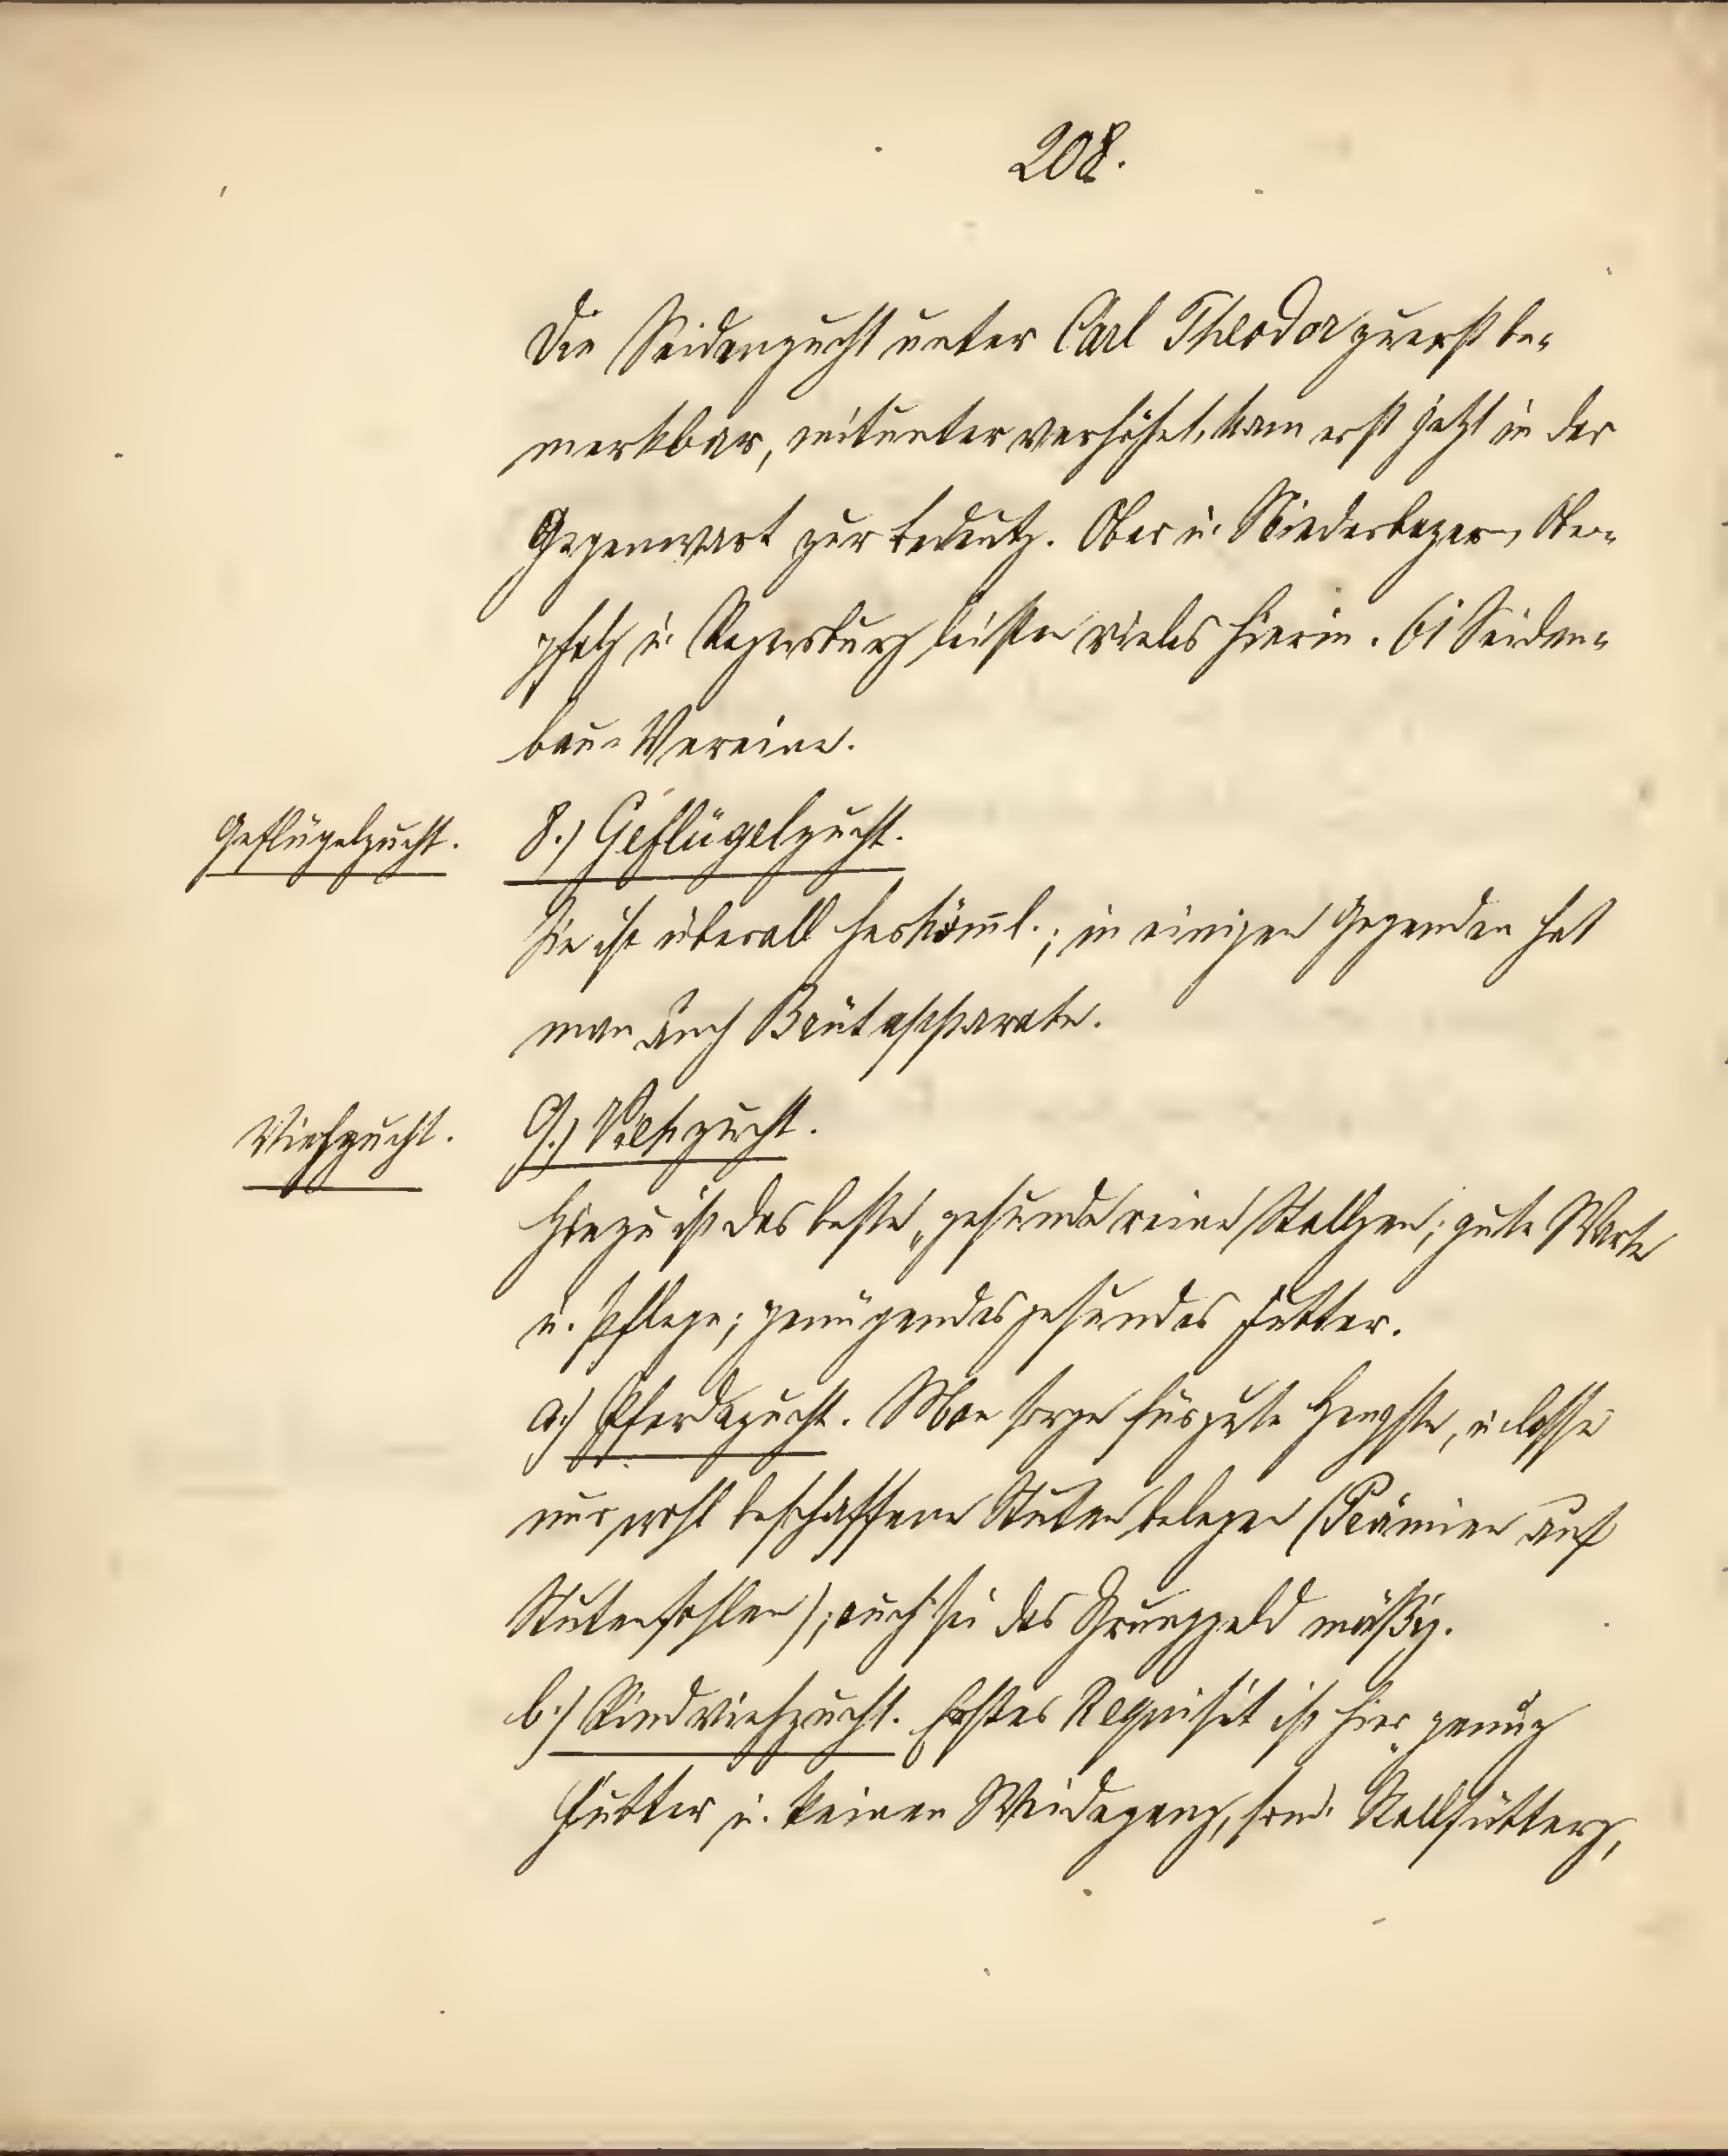 208.
Die Seidenzucht unter Carl Theodor zuerst be-
merkbar, mitunter verhöhet, kam erst jetzt in der
Gegenwart zur Bedeutg. Ober u. Niederbayern, Ober-
pfalz u. Regensburg leisten vieles hierin. 61 Seiden-
bau-Vereine.
Geflügelzucht.
8.) Geflügelzucht.
Sie ist überall herköml.; in einigen Gegenden hat
man auch Brütapparate.
Viehzucht.
9.) Viehzucht.
Hiezu ist das beste „gesunde reine Stallgen; gute Warte
u. Pflege; genügendes gesundes Futter.
a.) Pferdezucht. Man sorge für gute Hengste, u. lasse
nur wohl beschaffene Stuten belegen (Prämien auf
Stutenfohlen); auch sei das Sprunggeld mäßig.
b.) Rindviehzucht. Erstes Requisit ist hier genug
Futter u. keinen Weidegang, sond. Stallfütterg,